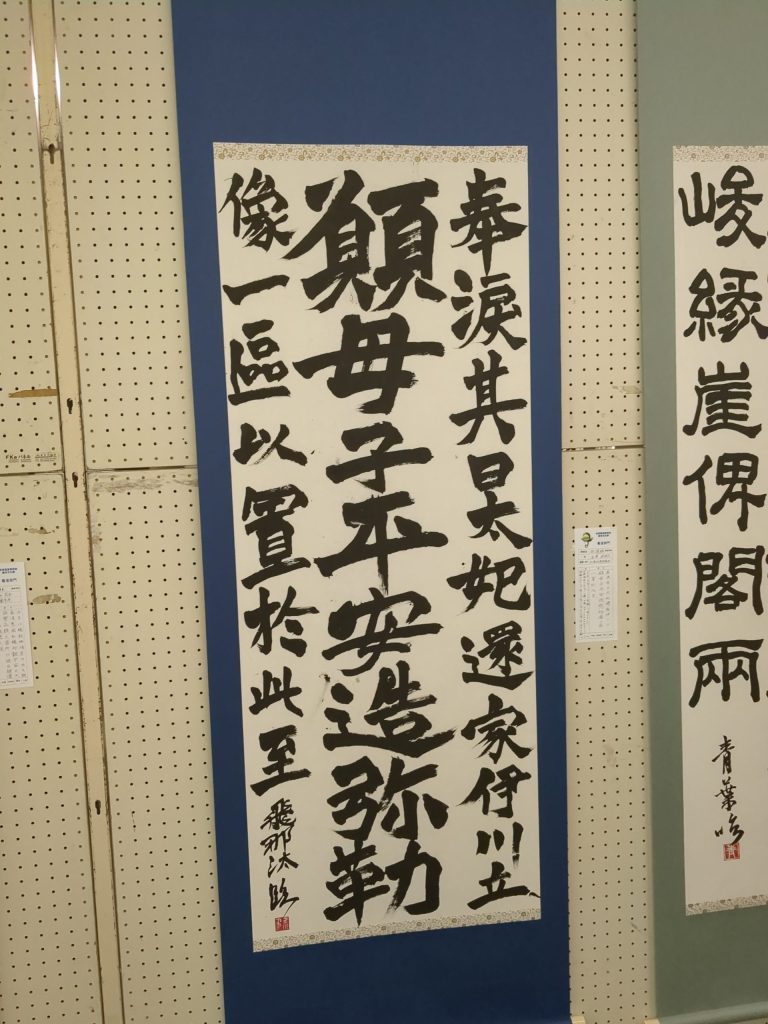 峻緣崖俾閣兩
青葉臨
奉淚其日太妃還家伊川立
願母子平安造弥勒
像一區以置於此至
飛那汰臨